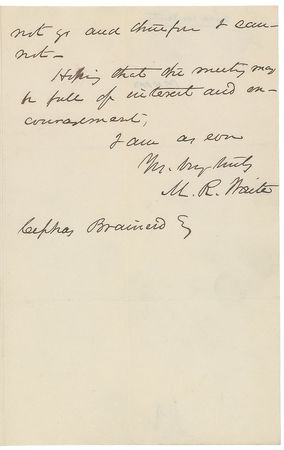 not go and therefore I can-
not-
Hoping that the meeting may
be full of interest and en-
couragement,
I am as ever
Yr. Very truly
M. R. Waite
Cephas Brainerd Esq